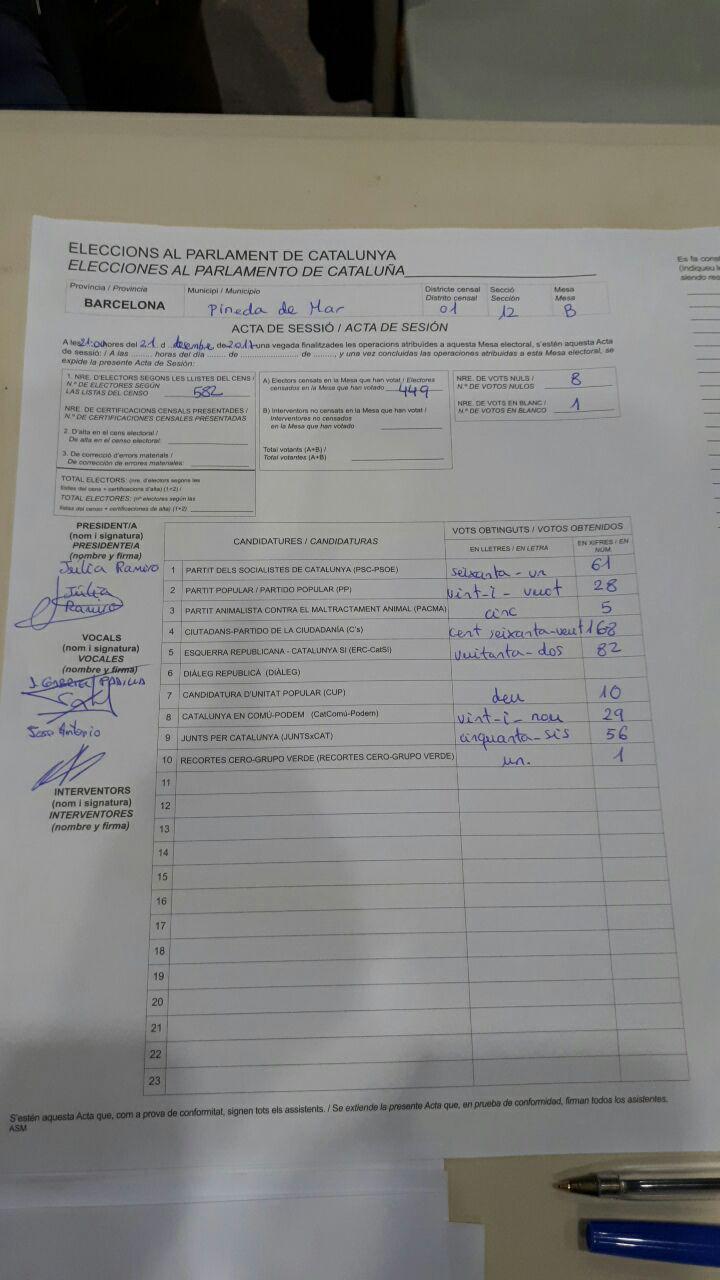 ELECCIONS AL PARLAMENT DE CATALUNYA
ELECCIONES AL PARLAMENTO DE CATALUÑA
Es fa const
(Indiqueu l
siendo rea
Província / Provincia Municipi / Municipio Districte censal Secció Mesa
Distrito censal Sección Mesa
BARCELONA Pineda de Mar 01 12 B
ACTA DE SESSIÓ / ACTA DE SESIÓN
A les 21:00 hores del 21 d desembre de 2017 una vegada finalitzades les operacions atribuïdes a aquesta Mesa electoral, s'estén aquesta Acta
de sessió: / A las ......... horas del día ...... de .................... de ......., y una vez concluidas las operaciones atribuidas a esta Mesa electoral, se
expide la presente Acta de Sesión:
1. NRE. D'ELECTORS SEGONS LES LLISTES DEL CENS /
N.º DE ELECTORES SEGÚN
LAS LISTAS DEL CENSO 582
NRE. DE CERTIFICACIONS CENSALS PRESENTADES /
N.º DE CERTIFICACIONES CENSALES PRESENTADAS
2. D'alta en el cens electoral /
De alta en el censo electoral:
3. De correcció d'errors materials /
De corrección de errores materiales:
TOTAL ELECTORS: (nre. d'electors segons les
llistes del cens + certificacions d'alta) (1+2) /
TOTAL ELECTORES: (nº electores según las
listas del censo + certificaciones de alta) (1+2)
A) Electors censats en la Mesa que han votat / Electores
censados en la Mesa que han votado 449
B) Interventors no censats en la Mesa que han votat /
Interventores no censados
en la Mesa que han votado
Total votants (A+B) /
Total votantes (A+B)
NRE. DE VOTS NULS / 8
N.º DE VOTOS NULOS
NRE. DE VOTS EN BLANC / 1
N.º DE VOTOS EN BLANCO
PRESIDENT/A
(nom i signatura)
PRESIDENTE/A
(nombre y firma)
Júlia Ramiro
Júlia
Ramiro
VOCALS
(nom i signatura)
VOCALES
(nombre y firma)
J. GABRIEL PADILLA
Jose Antonio
INTERVENTORS
(nom i signatura)
INTERVENTORES
(nombre y firma)
CANDIDATURES / CANDIDATURAS VOTS OBTINGUTS / VOTOS OBTENIDOS
EN LLETRES / EN LETRA EN XIFRES / EN NÚM.
1 PARTIT DELS SOCIALISTES DE CATALUNYA (PSC-PSOE) seixanta-un 61
2 PARTIT POPULAR / PARTIDO POPULAR (PP) vint-i-vuit 28
3 PARTIT ANIMALISTA CONTRA EL MALTRACTAMENT ANIMAL (PACMA) cinc 5
4 CIUTADANS-PARTIDO DE LA CIUDADANÍA (C's) cent seixanta-vuit 168
5 ESQUERRA REPUBLICANA - CATALUNYA SÍ (ERC-CatSí) vuitanta-dos 82
6 DIÀLEG REPUBLICÀ (DIÀLEG)
7 CANDIDATURA D'UNITAT POPULAR (CUP) deu 10
8 CATALUNYA EN COMÚ-PODEM (CatComú-Podem) vint-i-nou 29
9 JUNTS PER CATALUNYA (JUNTSxCAT) cinquanta-sis 56
10 RECORTES CERO-GRUPO VERDE (RECORTES CERO-GRUPO VERDE) un. 1
11
12
13
14
15
16
17
18
19
20
21
22
23
S'estén aquesta Acta que, com a prova de conformitat, signen tots els assistents. / Se extiende la presente Acta que, en prueba de conformidad, firman todos los asistentes.
ASM